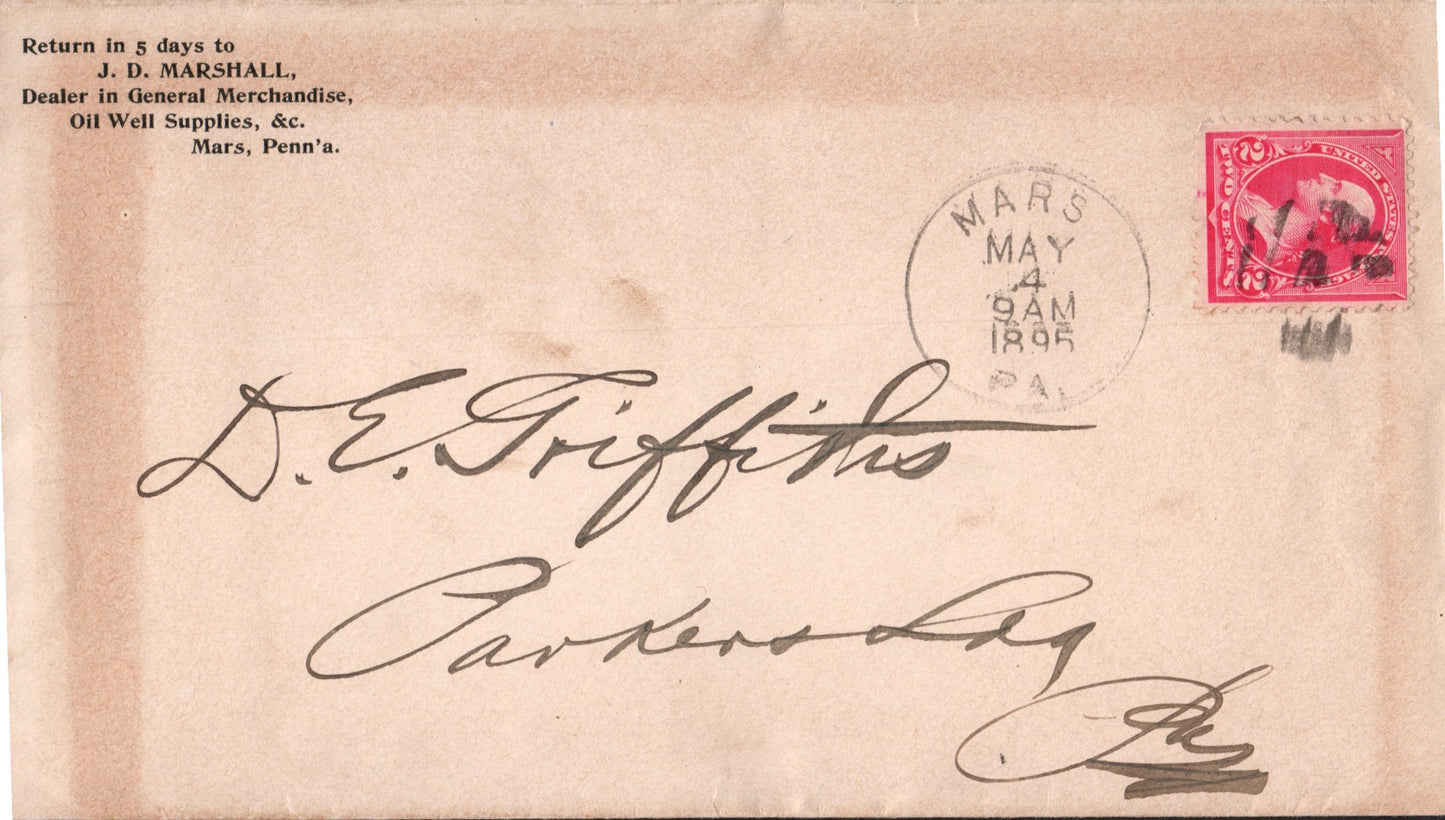 Return in 5 days to
J. D. MARSHALL,
Dealer in General Merchandise,
Oil Well Supplies, &c.
Mars, Penn'a.
MARS
MAY
4
9AM
1895
PA.
UNITED STATES POSTAGE
2 TWO CENTS 2
D. E. Griffiths
Parkers Ldg
Pa